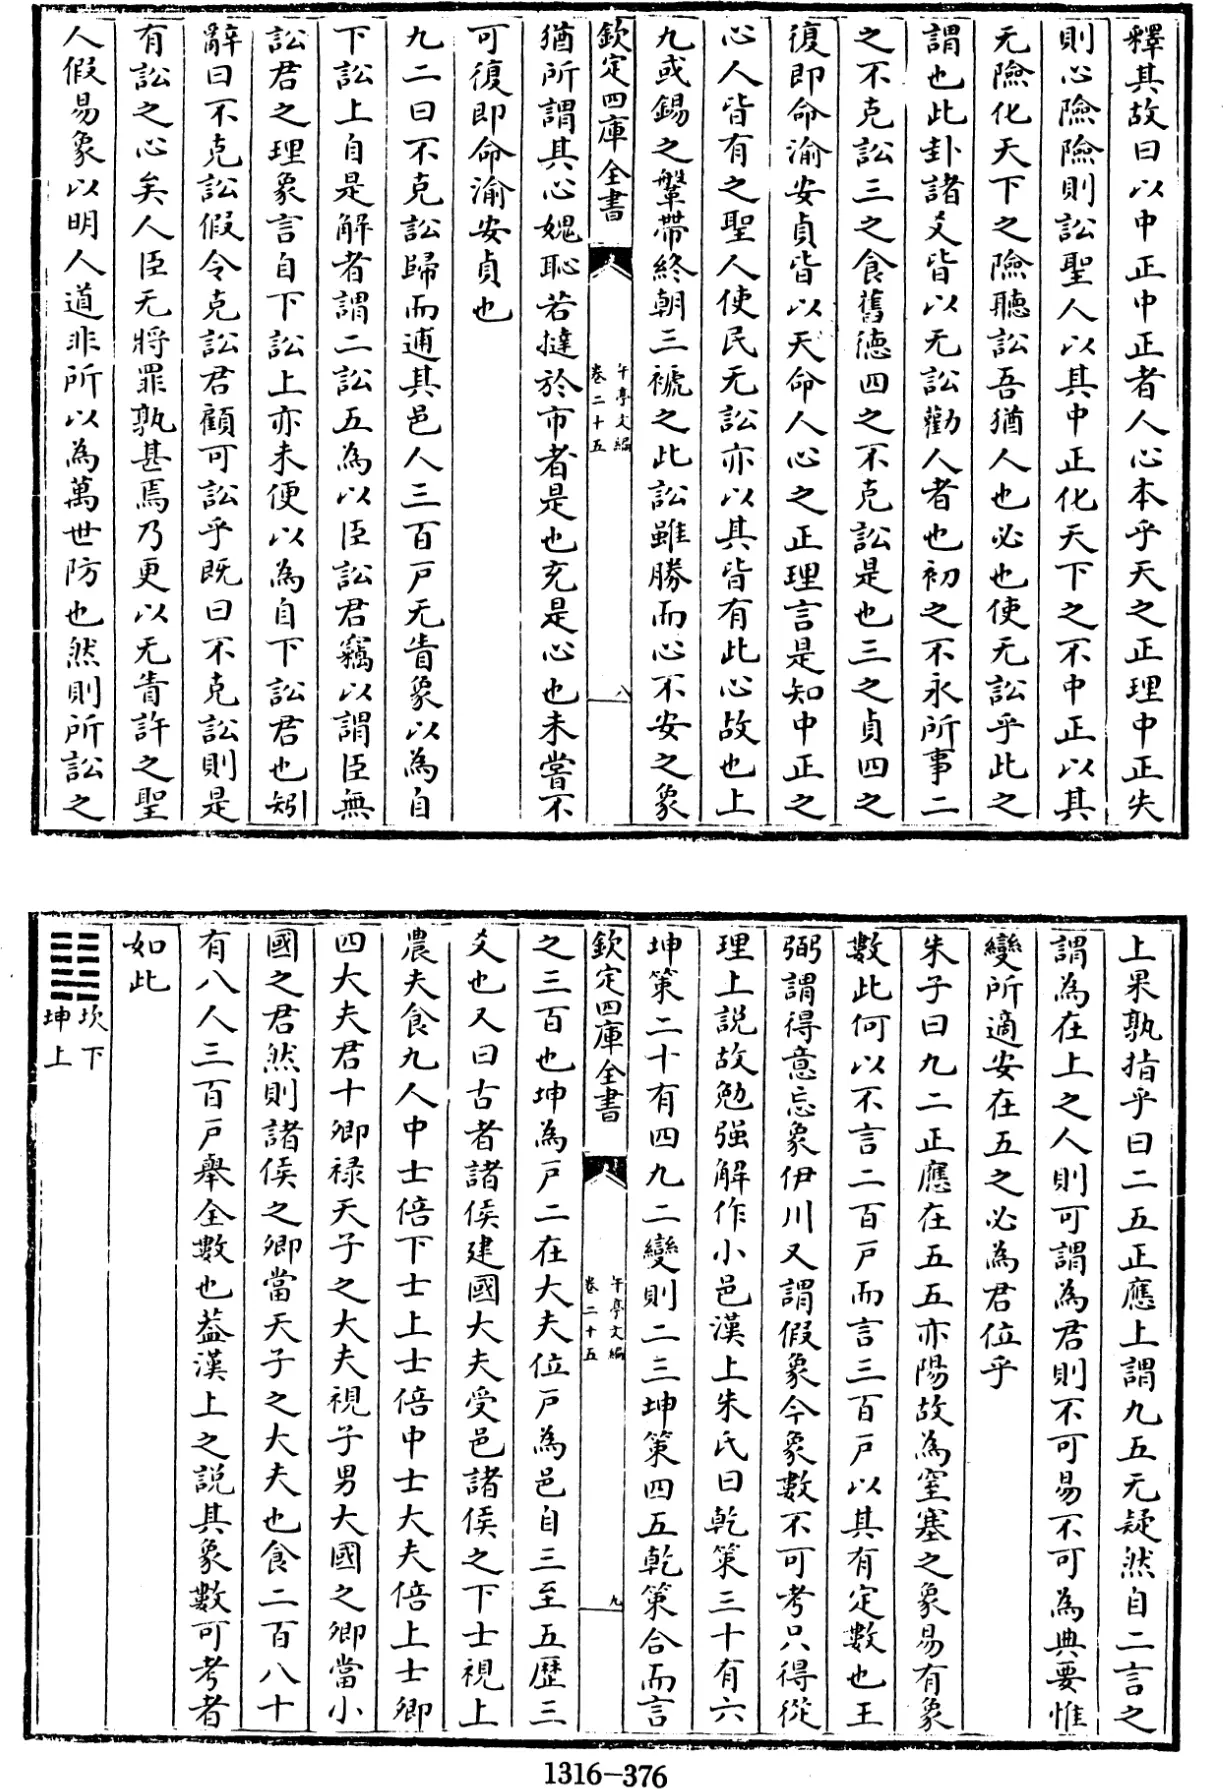 釋其故曰以中正中正者人心本乎天之正理中正失
則心險險則訟聖人以其中正化天下之不中正以其
无險化天下之險聽訟吾猶人也必也使无訟乎此之
謂也此卦諸爻皆以无訟勸人者也初之不永所事二
之不克訟三之食舊德四之不克訟是也三之貞四之
復即命渝安貞皆以天命人心之正理言是知中正之
心人皆有之聖人使民无訟亦以其皆有此心故也上
九或錫之鞶帶終朝三褫之此訟雖勝而心不安之象
欽定四庫全書
午亭文編
卷二十五
八
猶所謂其心媿恥若撻於市者是也充是心也未嘗不
可復即命渝安貞也
九二曰不克訟歸而逋其邑人三百戶无眚象以為自
下訟上自是解者謂二訟五為以臣訟君竊以謂臣無
訟君之理象言自下訟上亦未便以為自下訟君也矧
辭曰不克訟假令克訟君顧可訟乎既曰不克訟則是
有訟之心矣人臣无將罪孰甚焉乃更以无眚許之聖
人假易象以明人道非所以為萬世防也然則所訟之
上果孰指乎曰二五正應上謂九五无疑然自二言之
謂為在上之人則可謂為君則不可易不可為典要惟
變所適安在五之必為君位乎
朱子曰九二正應在五五亦陽故為窒塞之象易有象
數此何以不言二百戶而言三百戶以其有定數也王
弼謂得意忘象伊川又謂假象今象數不可考只得從
理上説故勉强解作小邑漢上朱氏曰乾策三十有六
坤策二十有四九二變則二三坤策四五乾策合而言
欽定四庫全書
午亭文編
卷二十五
九
之三百也坤為戶二在大夫位戶為邑自三至五歷三
爻也又曰古者諸侯建國大夫受邑諸侯之下士視上
農夫食九人中士倍下士上士倍中士大夫倍上士卿
四大夫君十卿祿天子之大夫視子男大國之卿當小
國之君然則諸侯之卿當天子之大夫也食二百八十
有八人三百戶舉全數也葢漢上之説其象數可考者
如此
坎下
坤上
1316-376